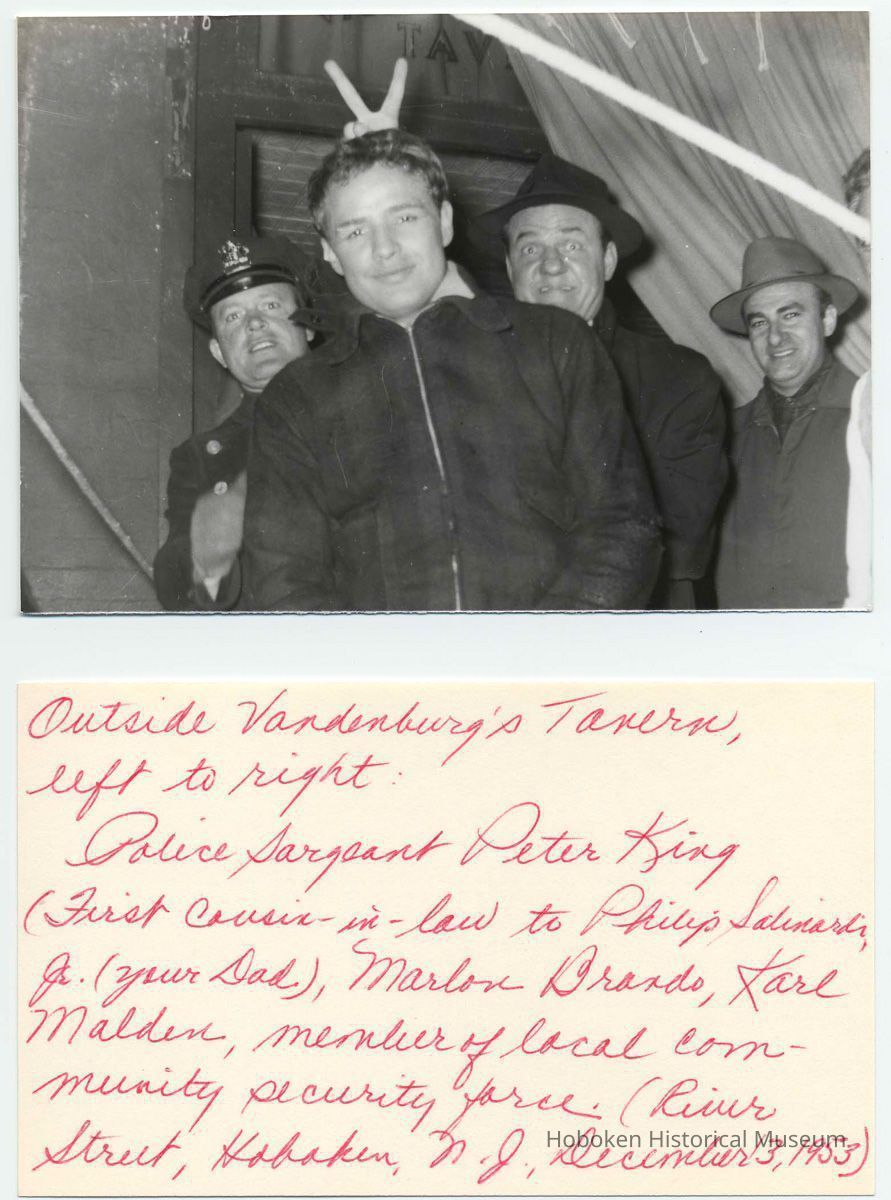 TAV
Outside Vandenburg's Tavern,
left to right:
Police Sargeant Peter King
(First cousin-in-law to Philip Salinardi,
Jr. (your Dad), Marlon Brando, Karl
Malden, member of local com-
munity security force. (River
Street, Hoboken, N.J., December 3, 1953)
Hoboken Historical Museum